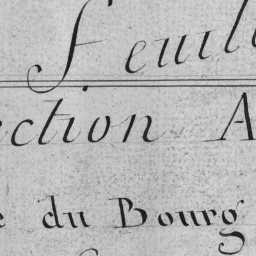 feuil
ection A
e du Bourg